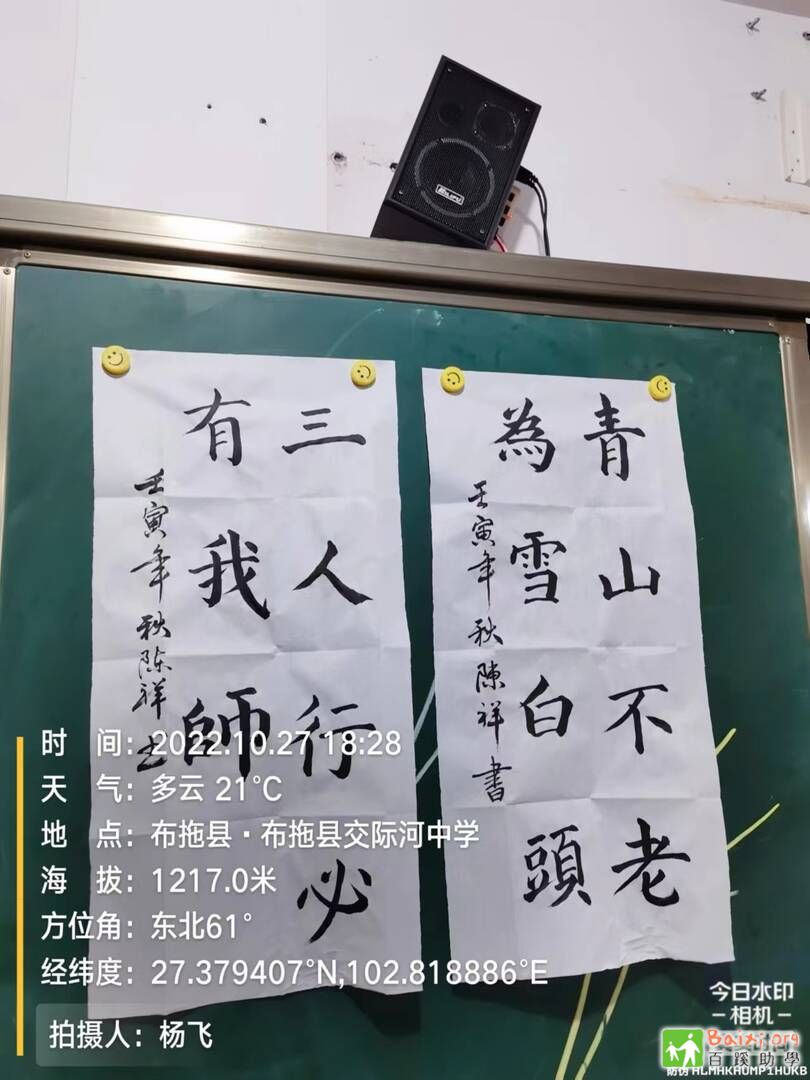 青山不老
為雪白頭
壬寅年秋陳祥書
三人行必
有我師
壬寅年秋陈祥书
时间：2022.10.27 18:28
天气：多云 21℃
地点：布拖县·布拖县交际河中学
海拔：1217.0米
方位角：东北61°
经纬度：27.379407°N,102.818886°E
拍摄人：杨飞
今日水印
-相机-
Baixi.org
百蹊助學
防伪 ALMHKAUMP1HUKB